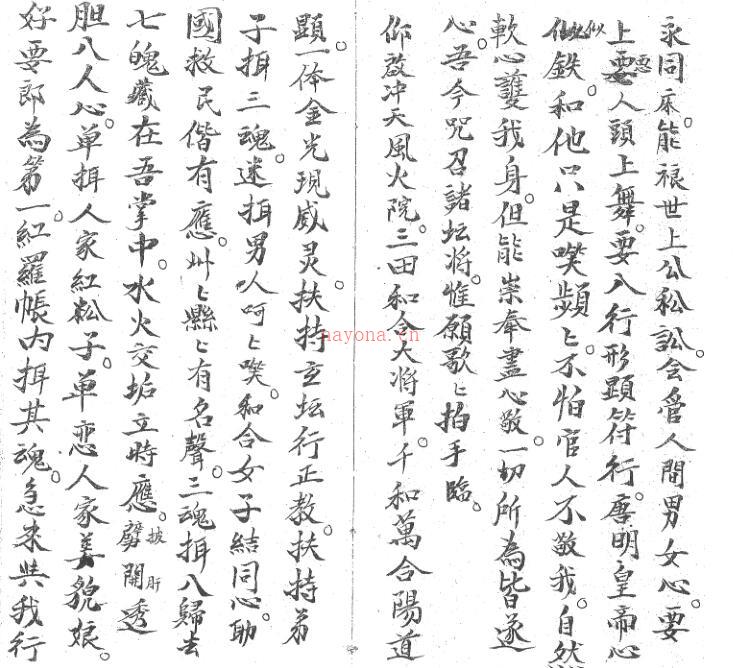 永同床。能禳世上公私訟。会管人間男女心。要
上要惡人頭上舞。要入行形顕符行。唐明皇帝心
似似鉄。和他只是笑頻〻。不怕官人不敬我。自然
軟心護我身。但能崇奉盡心敬。一切所為皆遂
心。吾今咒召諸坛将。惟願歌〻拍手臨。
仰啟冲天風火院。三田和合大将軍。千和萬合陽道
顕。一体金光現威灵。扶持立坛行正教。扶持弟
子揖三魂。迷揖男人呵〻笑。和合女子結同心。助
國救民偕有應。州〻縣〻有名聲。三魂揖八歸去
七魄藏在吾掌中。水火交垢立時應。劈披開肝透
胆八人心。单揖人家紅粉子。单恋人家美貌娘。
好要郎為第一。紅羅帳内揖其魂。急来与我行
nayona.cn